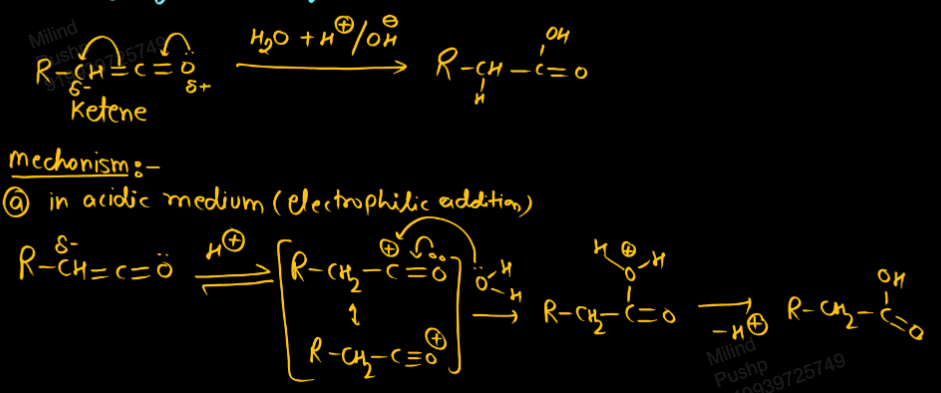 Milind
Pushp
919939725749
R-CH=C=Ö H₂O + H⊕/OH⊖ → R-CH-C=O
OH
H
δ- δ+
Ketene
mechanism:-
ⓐ in acidic medium (electrophilic addition)
R-CH=C=Ö H⊕ ⇌ [R-CH₂-C⊕=O ↕ R-CH₂-C≡O⊕] H-O-H → R-CH₂-C=O → -H⊕ R-CH₂-C=O
δ-
H ⊕ H
O
OH
Milind
Pushp
919939725749